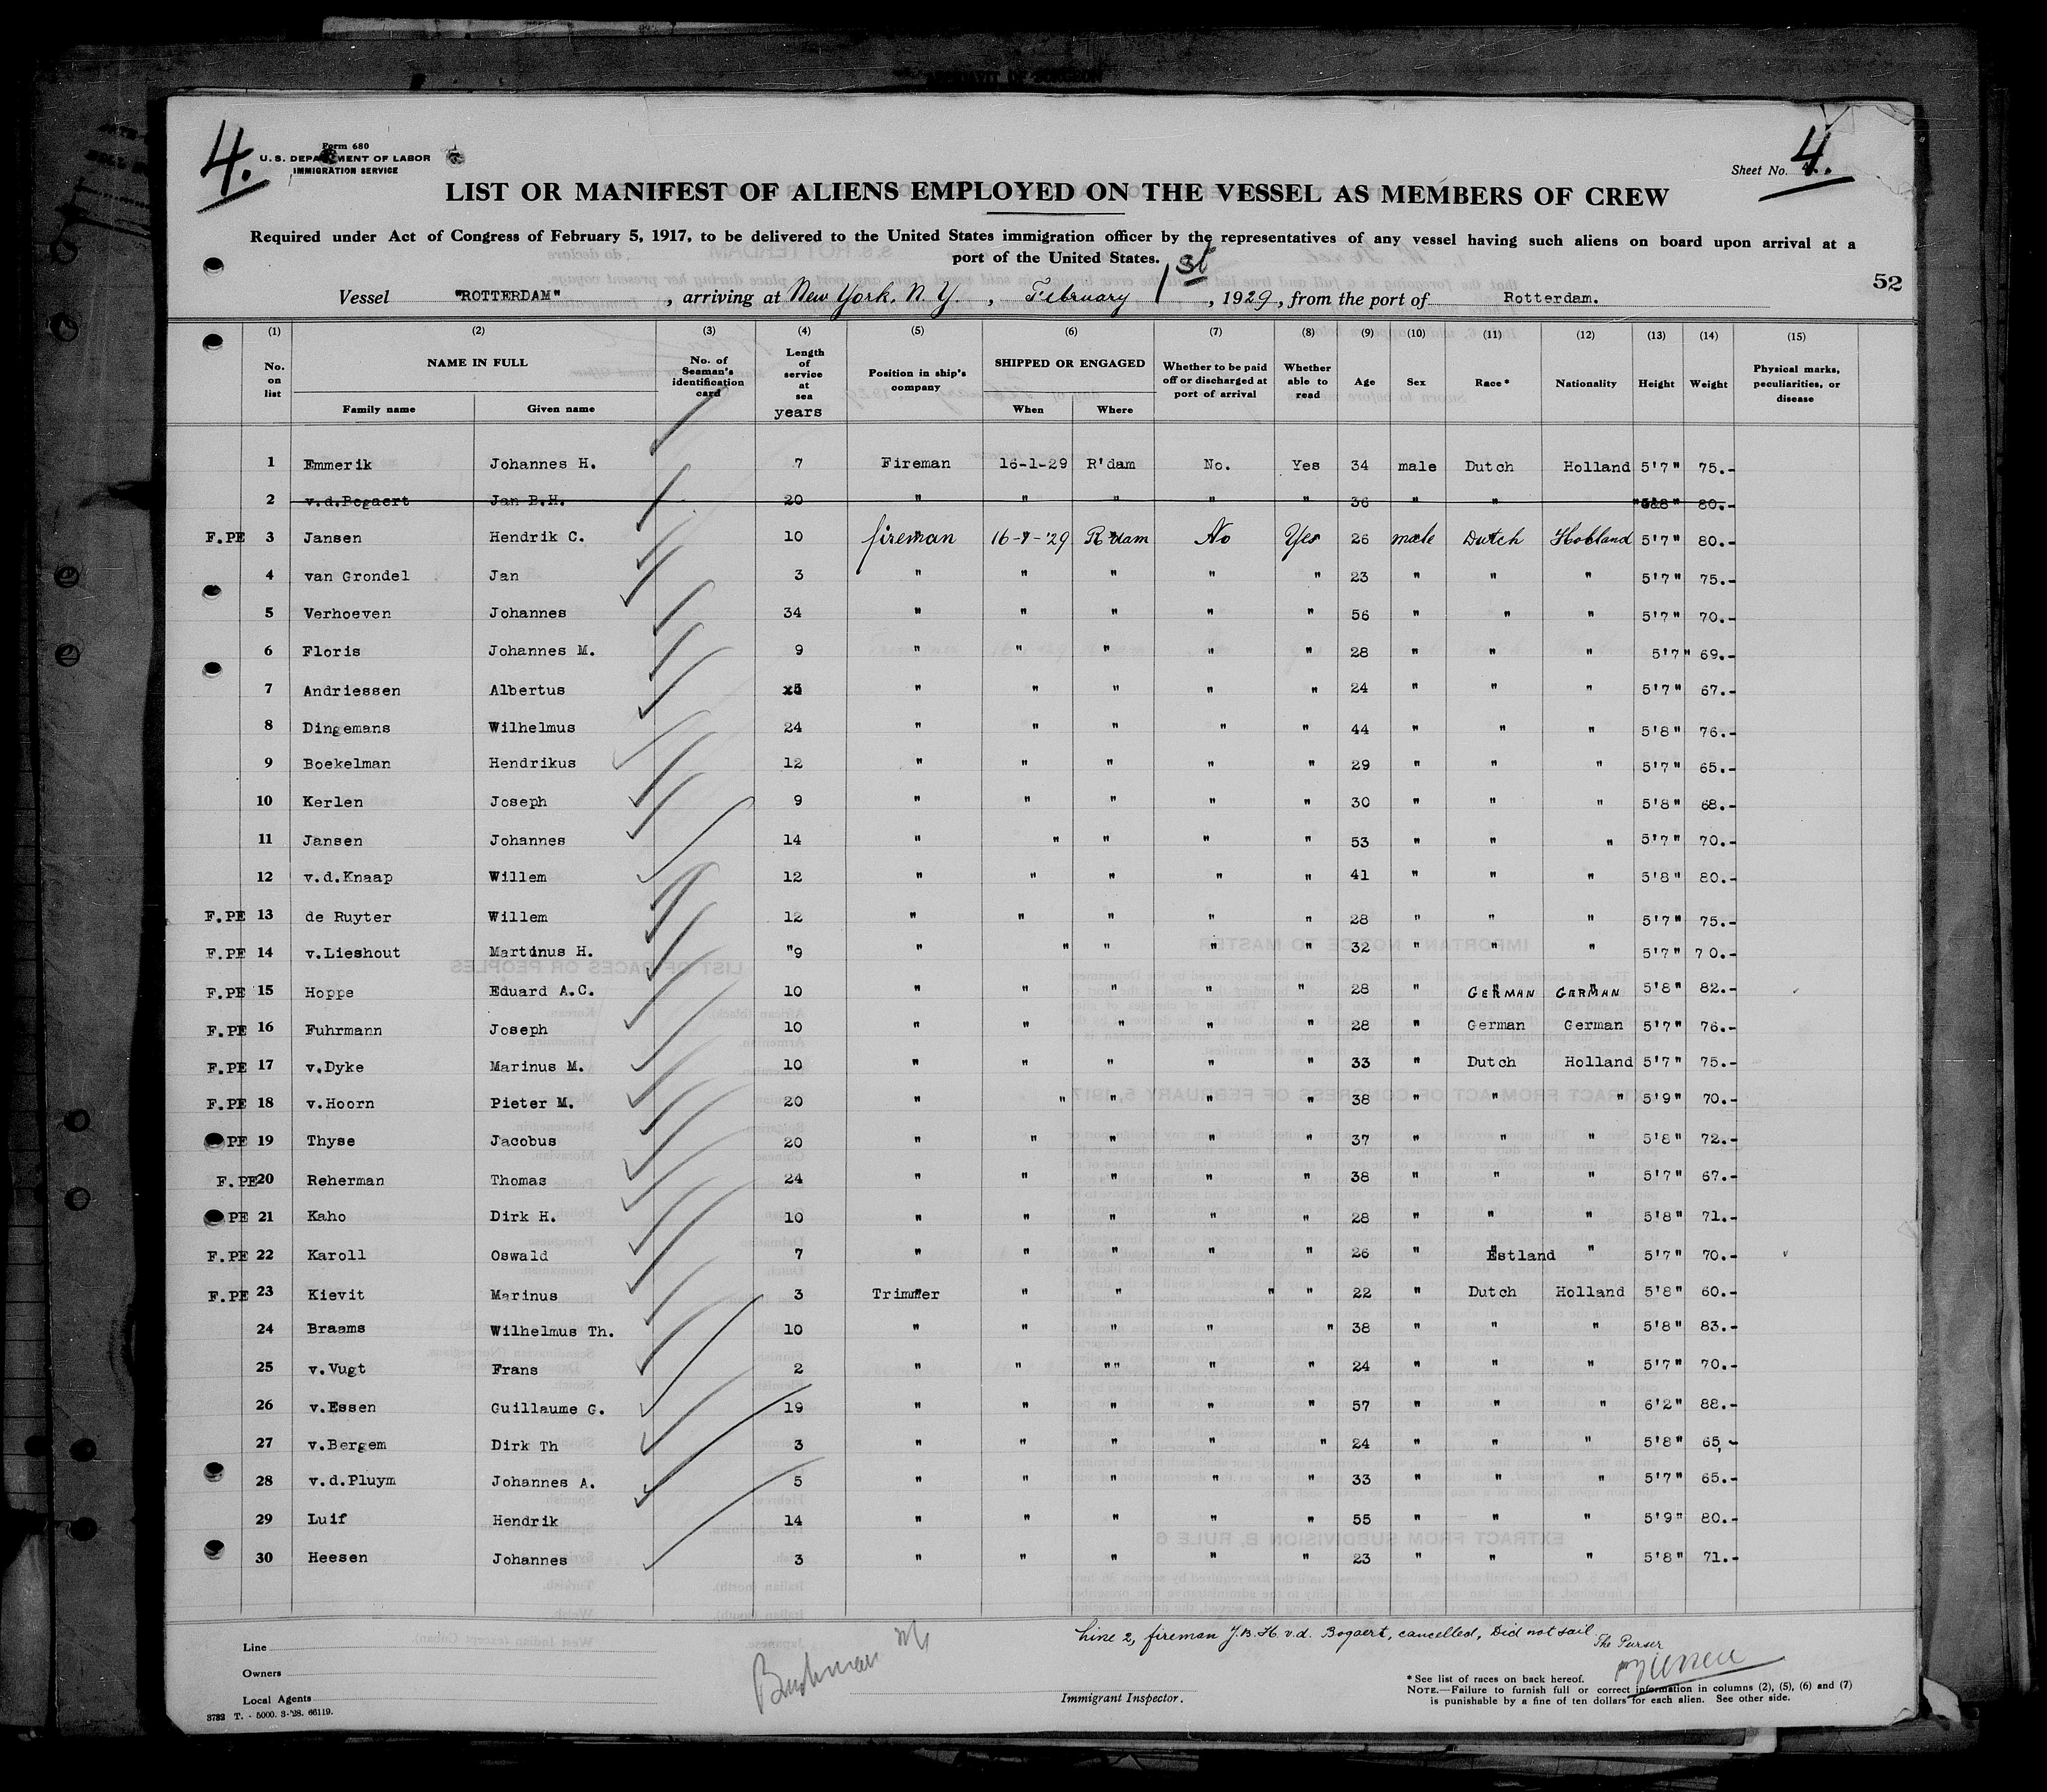 4.
Form 680
U. S. DEPARTMENT OF LABOR
IMMIGRATION SERVICE
Sheet No. 4.
LIST OR MANIFEST OF ALIENS EMPLOYED ON THE VESSEL AS MEMBERS OF CREW
Required under Act of Congress of February 5, 1917, to be delivered to the United States immigration officer by the representatives of any vessel having such aliens on board upon arrival at a
port of the United States.
52
Vessel "ROTTERDAM" , arriving at New York, N. Y. , February 1st , 1929 , from the port of Rotterdam.
(1) (2) (3) (4) (5) (6) (7) (8) (9) (10) (11) (12) (13) (14) (15)
No. on list NAME IN FULL Family name Given name No. of Seaman's identification card Length of service at sea years Position in ship's company SHIPPED OR ENGAGED When Where Whether to be paid off or discharged at port of arrival Whether able to read Age Sex Race* Nationality Height Weight Physical marks, peculiarities, or disease
1 Emmerik Johannes H. 7 Fireman 16-1-29 R'dam No. Yes 34 male Dutch Holland 5'7" 75.-
2 v.d.Bogaert Jan B.H. 20 " " " " " 36 " " " 5'8" 80.-
F.PE 3 Jansen Hendrik C. 10 fireman 16-1-'29 R'dam No Yes 26 male Dutch Holland 5'7" 80.-
4 van Grondel Jan 3 " " " " " 23 " " " 5'7" 75.-
5 Verhoeven Johannes 34 " " " " " 56 " " " 5'7" 70.-
6 Floris Johannes M. 9 " " " " " 28 " " " 5'7" 69.-
7 Andriessen Albertus " " " " " 24 " " " 5'7" 67.-
8 Dingemans Wilhelmus 24 " " " " " 44 " " " 5'8" 76.-
9 Boekelman Hendrikus 12 " " " " " 29 " " " 5'7" 65.-
10 Kerlen Joseph 9 " " " " " 30 " " " 5'8" 68.-
11 Jansen Johannes 14 " " " " " 53 " " " 5'7" 70.-
12 v.d.Knaap Willem 12 " " " " " 41 " " " 5'8" 80.-
F.PE 13 de Ruyter Willem 12 " " " " " 28 " " " 5'7" 75.-
F.PE 14 v.Lieshout Martinus H. "9 " " " " " 32 " " " 5'7" 70.-
F.PE 15 Hoppe Eduard A.C. 10 " " " " " 28 " GERMAN GERMAN 5'8" 82.-
F.PE 16 Fuhrmann Joseph 10 " " " " " 28 " German German 5'7" 76.-
F.PE 17 v.Dyke Marinus M. 10 " " " " " 33 " Dutch Holland 5'7" 75.-
F.PE 18 v.Hoorn Pieter M. 20 " " " " " 38 " " " 5'9" 70.-
PE 19 Thyse Jacobus 20 " " " " " 37 " " " 5'8" 72.-
F.PE 20 Reherman Thomas 24 " " " " " 38 " " " 5'7" 67.-
PE 21 Kaho Dirk H. 10 " " " " " 28 " " " 5'8" 71.-
F.PE 22 Karoll Oswald 7 " " " " " 26 " Estland " 5'7" 70.-
F.PE 23 Kievit Marinus 3 Trimmer " " " " 22 " Dutch Holland 5'8" 60.-
24 Braams Wilhelmus Th. 10 " " " " " 38 " " " 5'8" 83.-
25 v.Vugt Frans 2 " " "" " " 24 " " " 5'7" 70.-
26 v.Essen Guillaume G. 19 " " " " " 57 " " " 6'2" 88.-
27 v.Bergem Dirk Th 3 " " " " " 24 " " " 5'8" 65,-
28 v.d.Pluym Johannes A. 5 " " " " " 33 " " " 5'7" 65.-
29 Luif Hendrik 14 " " " " " 55 " " " 5'9" 80.-
30 Heesen Johannes 3 " " " " " 23 " " " 5'8" 71.-
Line 2, fireman J.B.H. v.d. Bogaert, cancelled, Did not sail.
The Purser
Line
Owners
Local Agents
Immigrant Inspector.
* See list of races on back hereof.
NOTE.—Failure to furnish full or correct information in columns (2), (5), (6) and (7)
is punishable by a fine of ten dollars for each alien. See other side.
3782 T. - 5000. 3-'28. 66119.